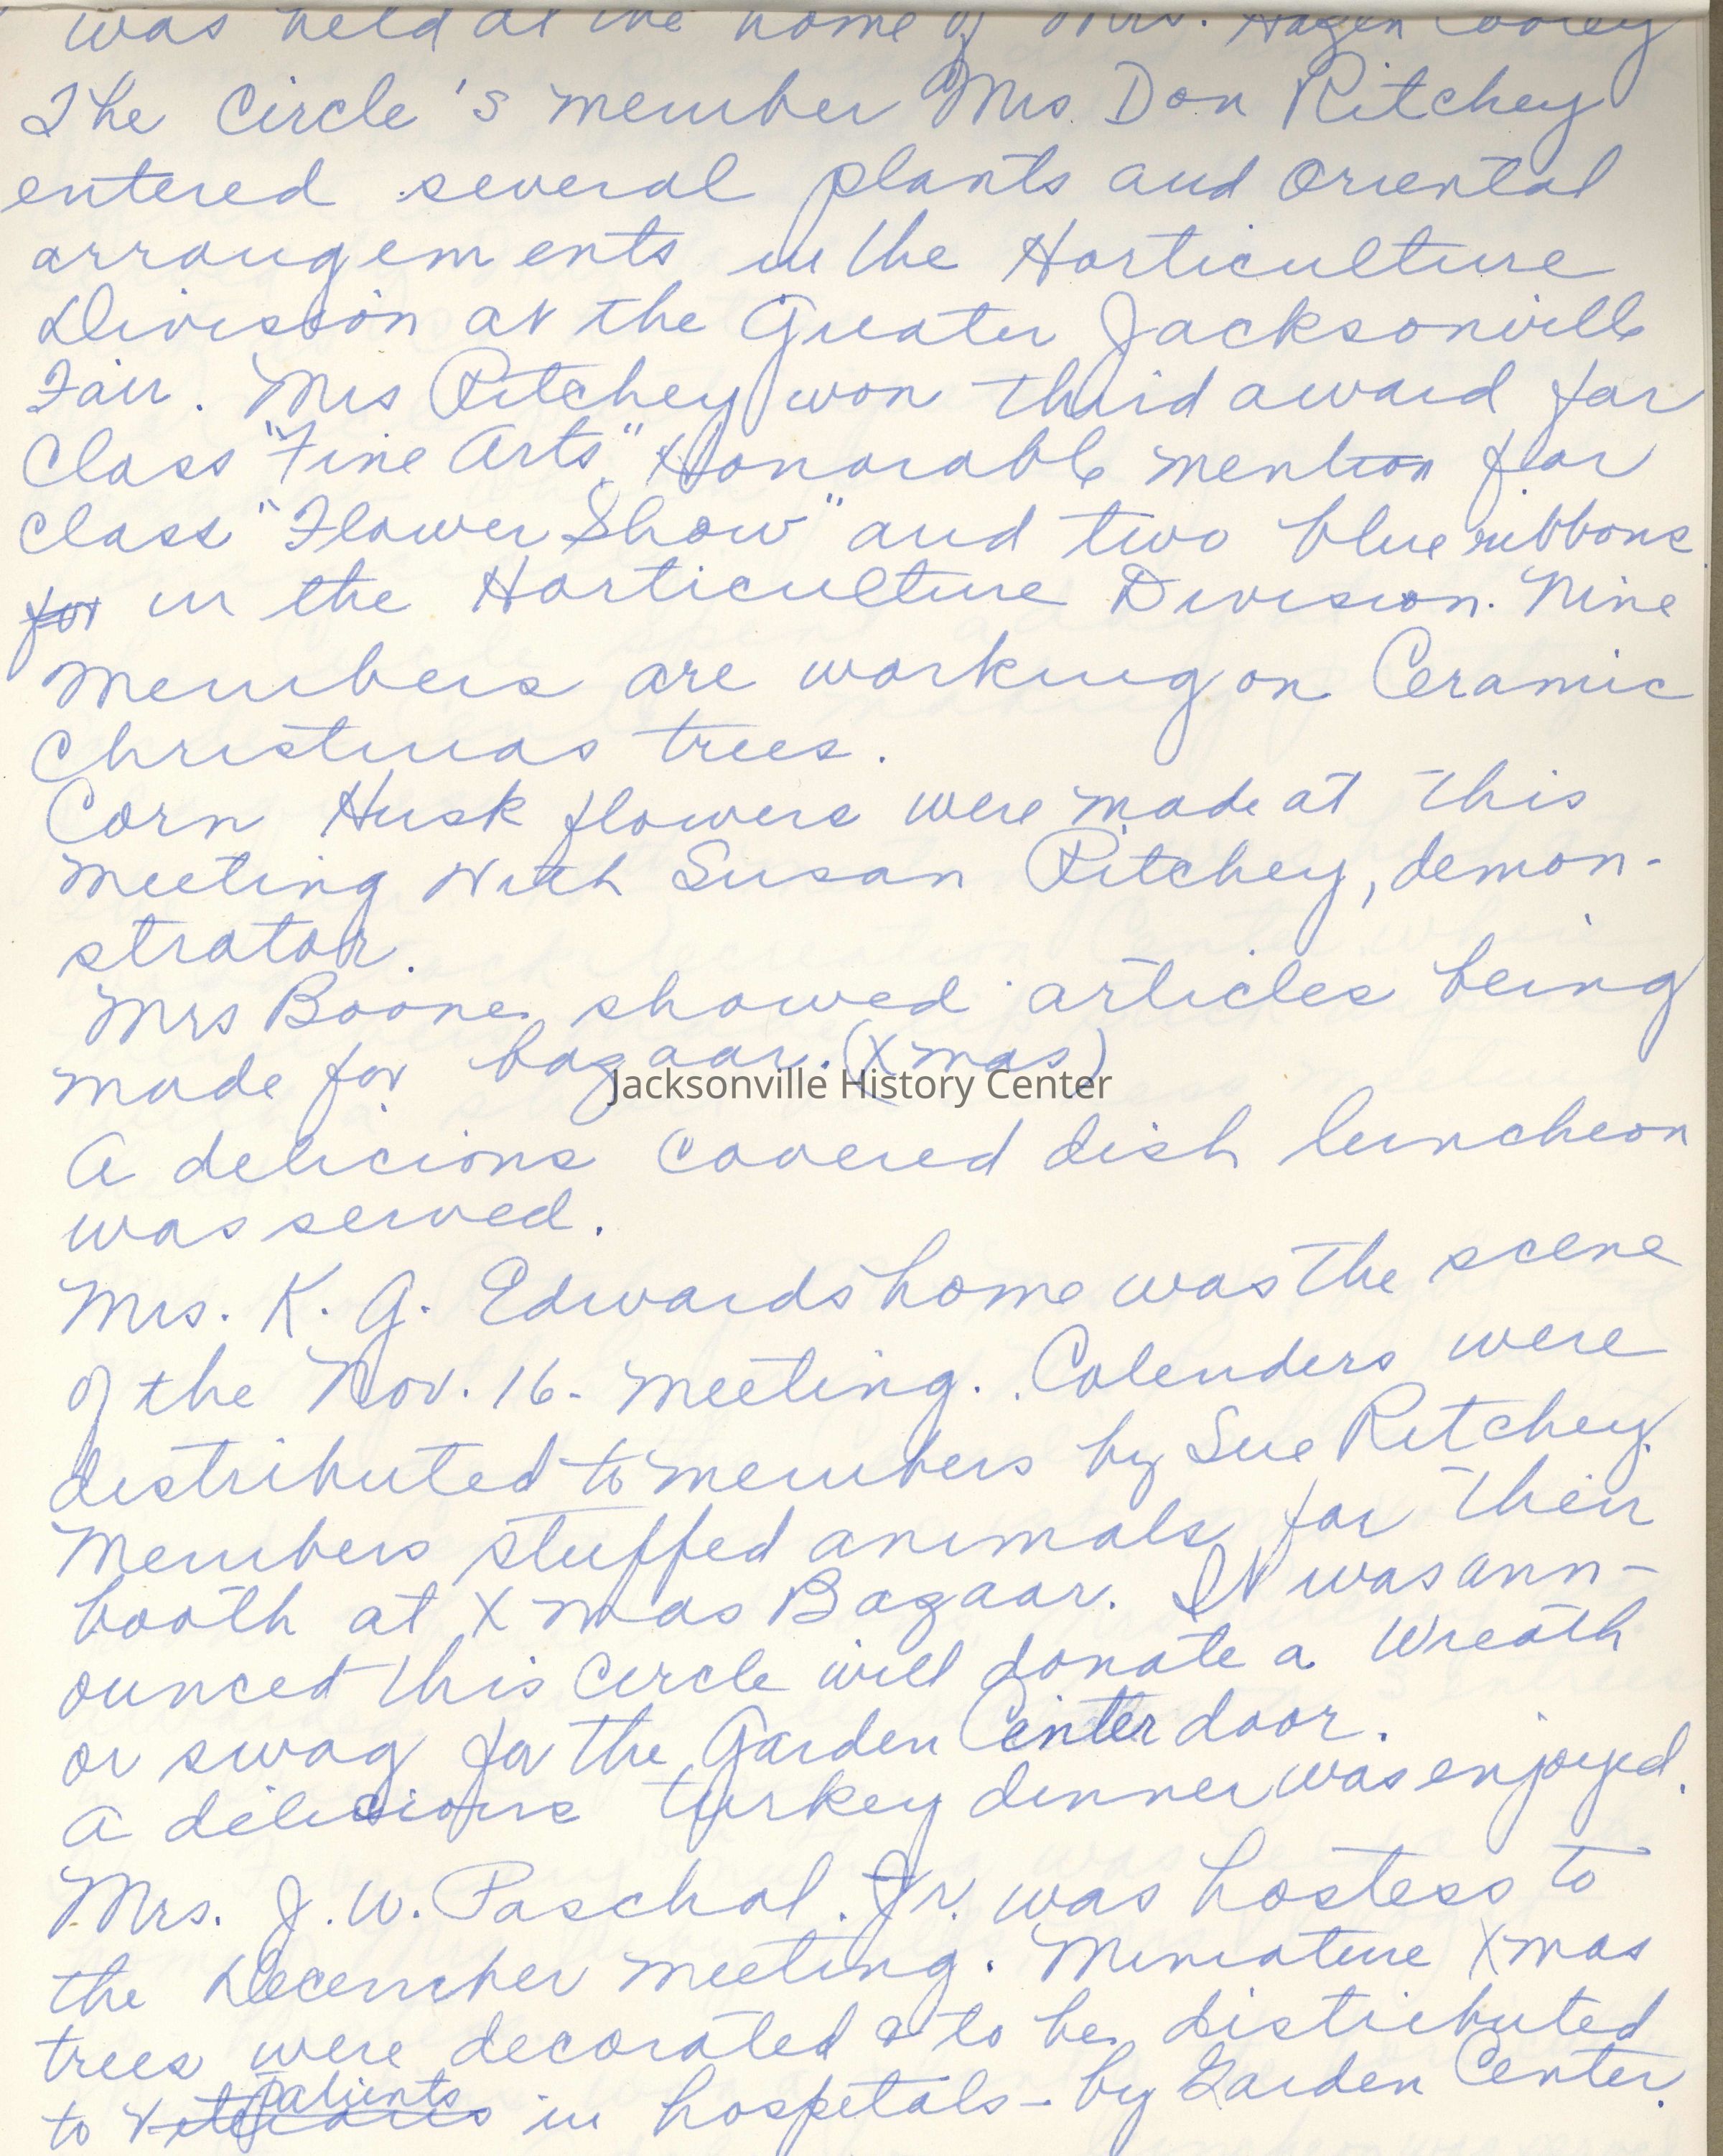 was held at the home of Mrs. Hagen Cooley
The Circle's member Mrs. Don Ritchey
entered several plants and Oriental
arrangements in the Horticulture
Division at the Greater Jacksonville
Fair. Mrs Ritchey won third award for
Class "Fine Arts". Honorable mention for
Class "Flower Show" and two blue ribbons
for in the Horticulture Division. Nine
members are working on Ceramic
Christmas trees.
Corn Husk flowers were made at this
meeting with Susan Ritchey, demon-
strator.
Mrs Boone showed articles being
made for bazaar. (Xmas)
Jacksonville History Center
A delicious covered dish luncheon
was served.
Mrs. K. G. Edwards home was the scene
of the Nov. 16- meeting. Calenders were
distributed to members by Sue Ritchey.
Members stuffed animals for their
booth at Xmas Bazaar. It was ann-
ounced this circle will donate a Wreath
or swag for the Garden Center door.
A delicious turkey dinner was enjoyed.
Mrs. J. W. Paschal. Jr. was hostess to
the December meeting. Miniature Xmas
trees were decorated & to be distributed
to patients in hospetals - by Garden Center.